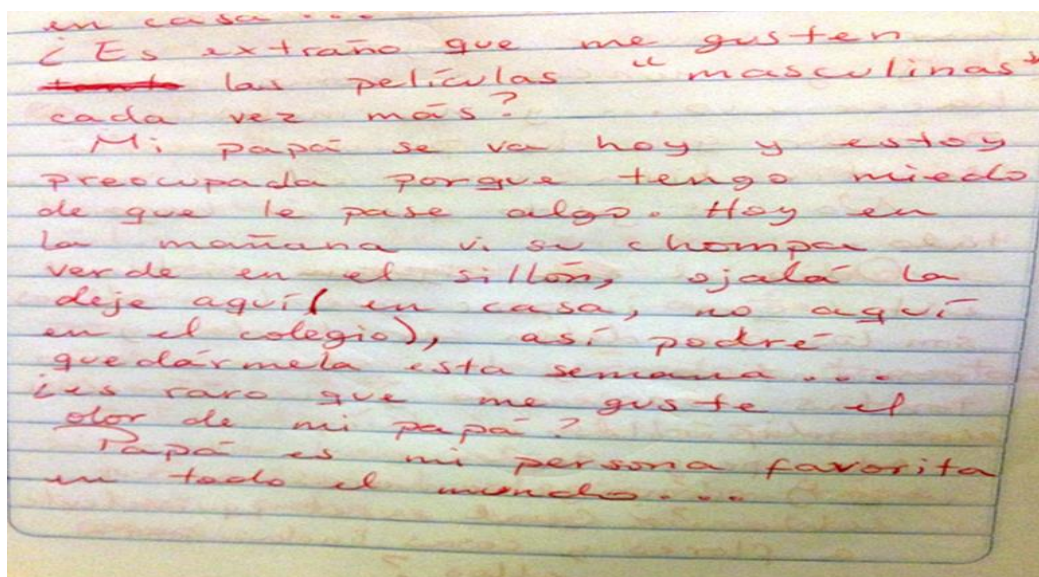 en casa...
¿Es extraño que me gusten
las películas "masculinas"
cada vez más?
Mi papá se va hoy y estoy
preocupada porque tengo miedo
de que le pase algo. Hoy en
la mañana vi su chompa
verde en el sillón, ojalá la
deje aquí (en casa, no aquí
en el colegio), así podré
quedármela esta semana...
¿es raro que me guste el
olor de mi papá?
Papá es mi persona favorita
en todo el mundo...